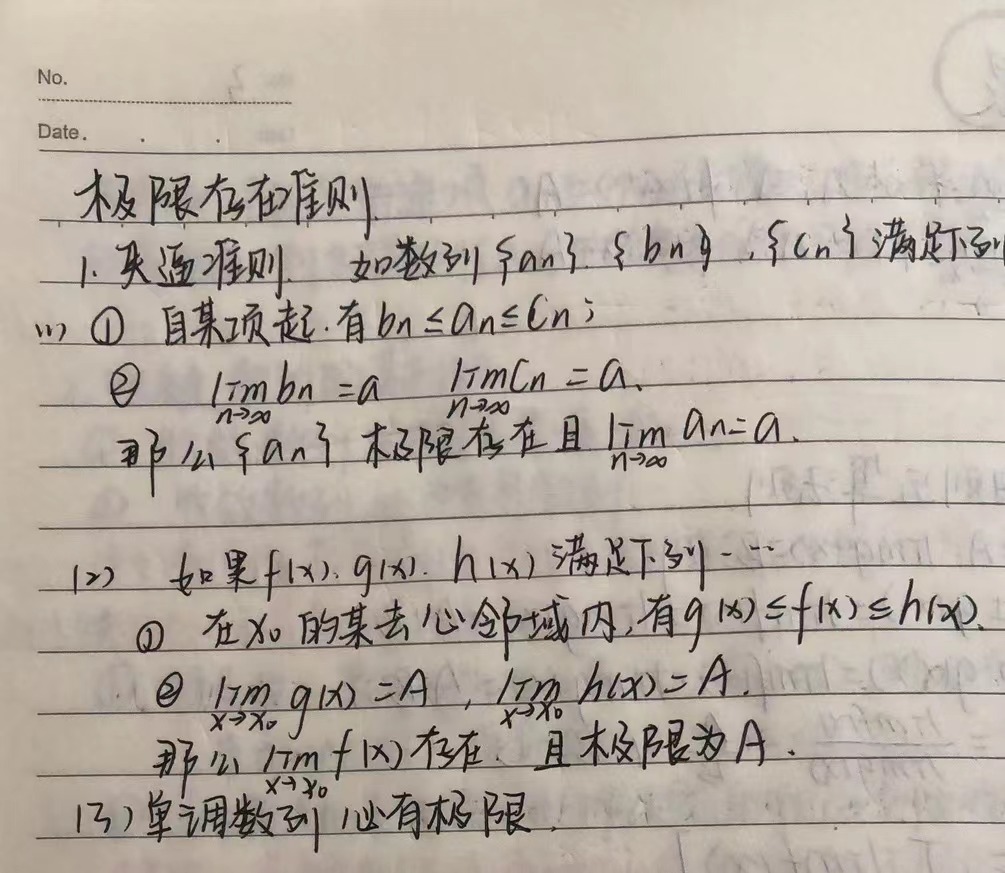 No.
Date.
极限存在准则.
1. 夹逼准则. 如数列{an}.{bn}.{Cn}满足下列
(1) ① 自某项起.有bn≤an≤Cn;
② lim n→∞ bn=a lim n→∞ Cn=a.
那么{an}极限存在且 lim n→∞ an=a.
(2) 如果f(x).g(x).h(x)满足下列……
① 在x₀的某去心邻域内,有g(x)≤f(x)≤h(x).
② lim x→x₀ g(x)=A, lim x→x₀ h(x)=A.
那么 lim x→x₀ f(x)存在.且极限为A.
(3) 单调数列必有极限.